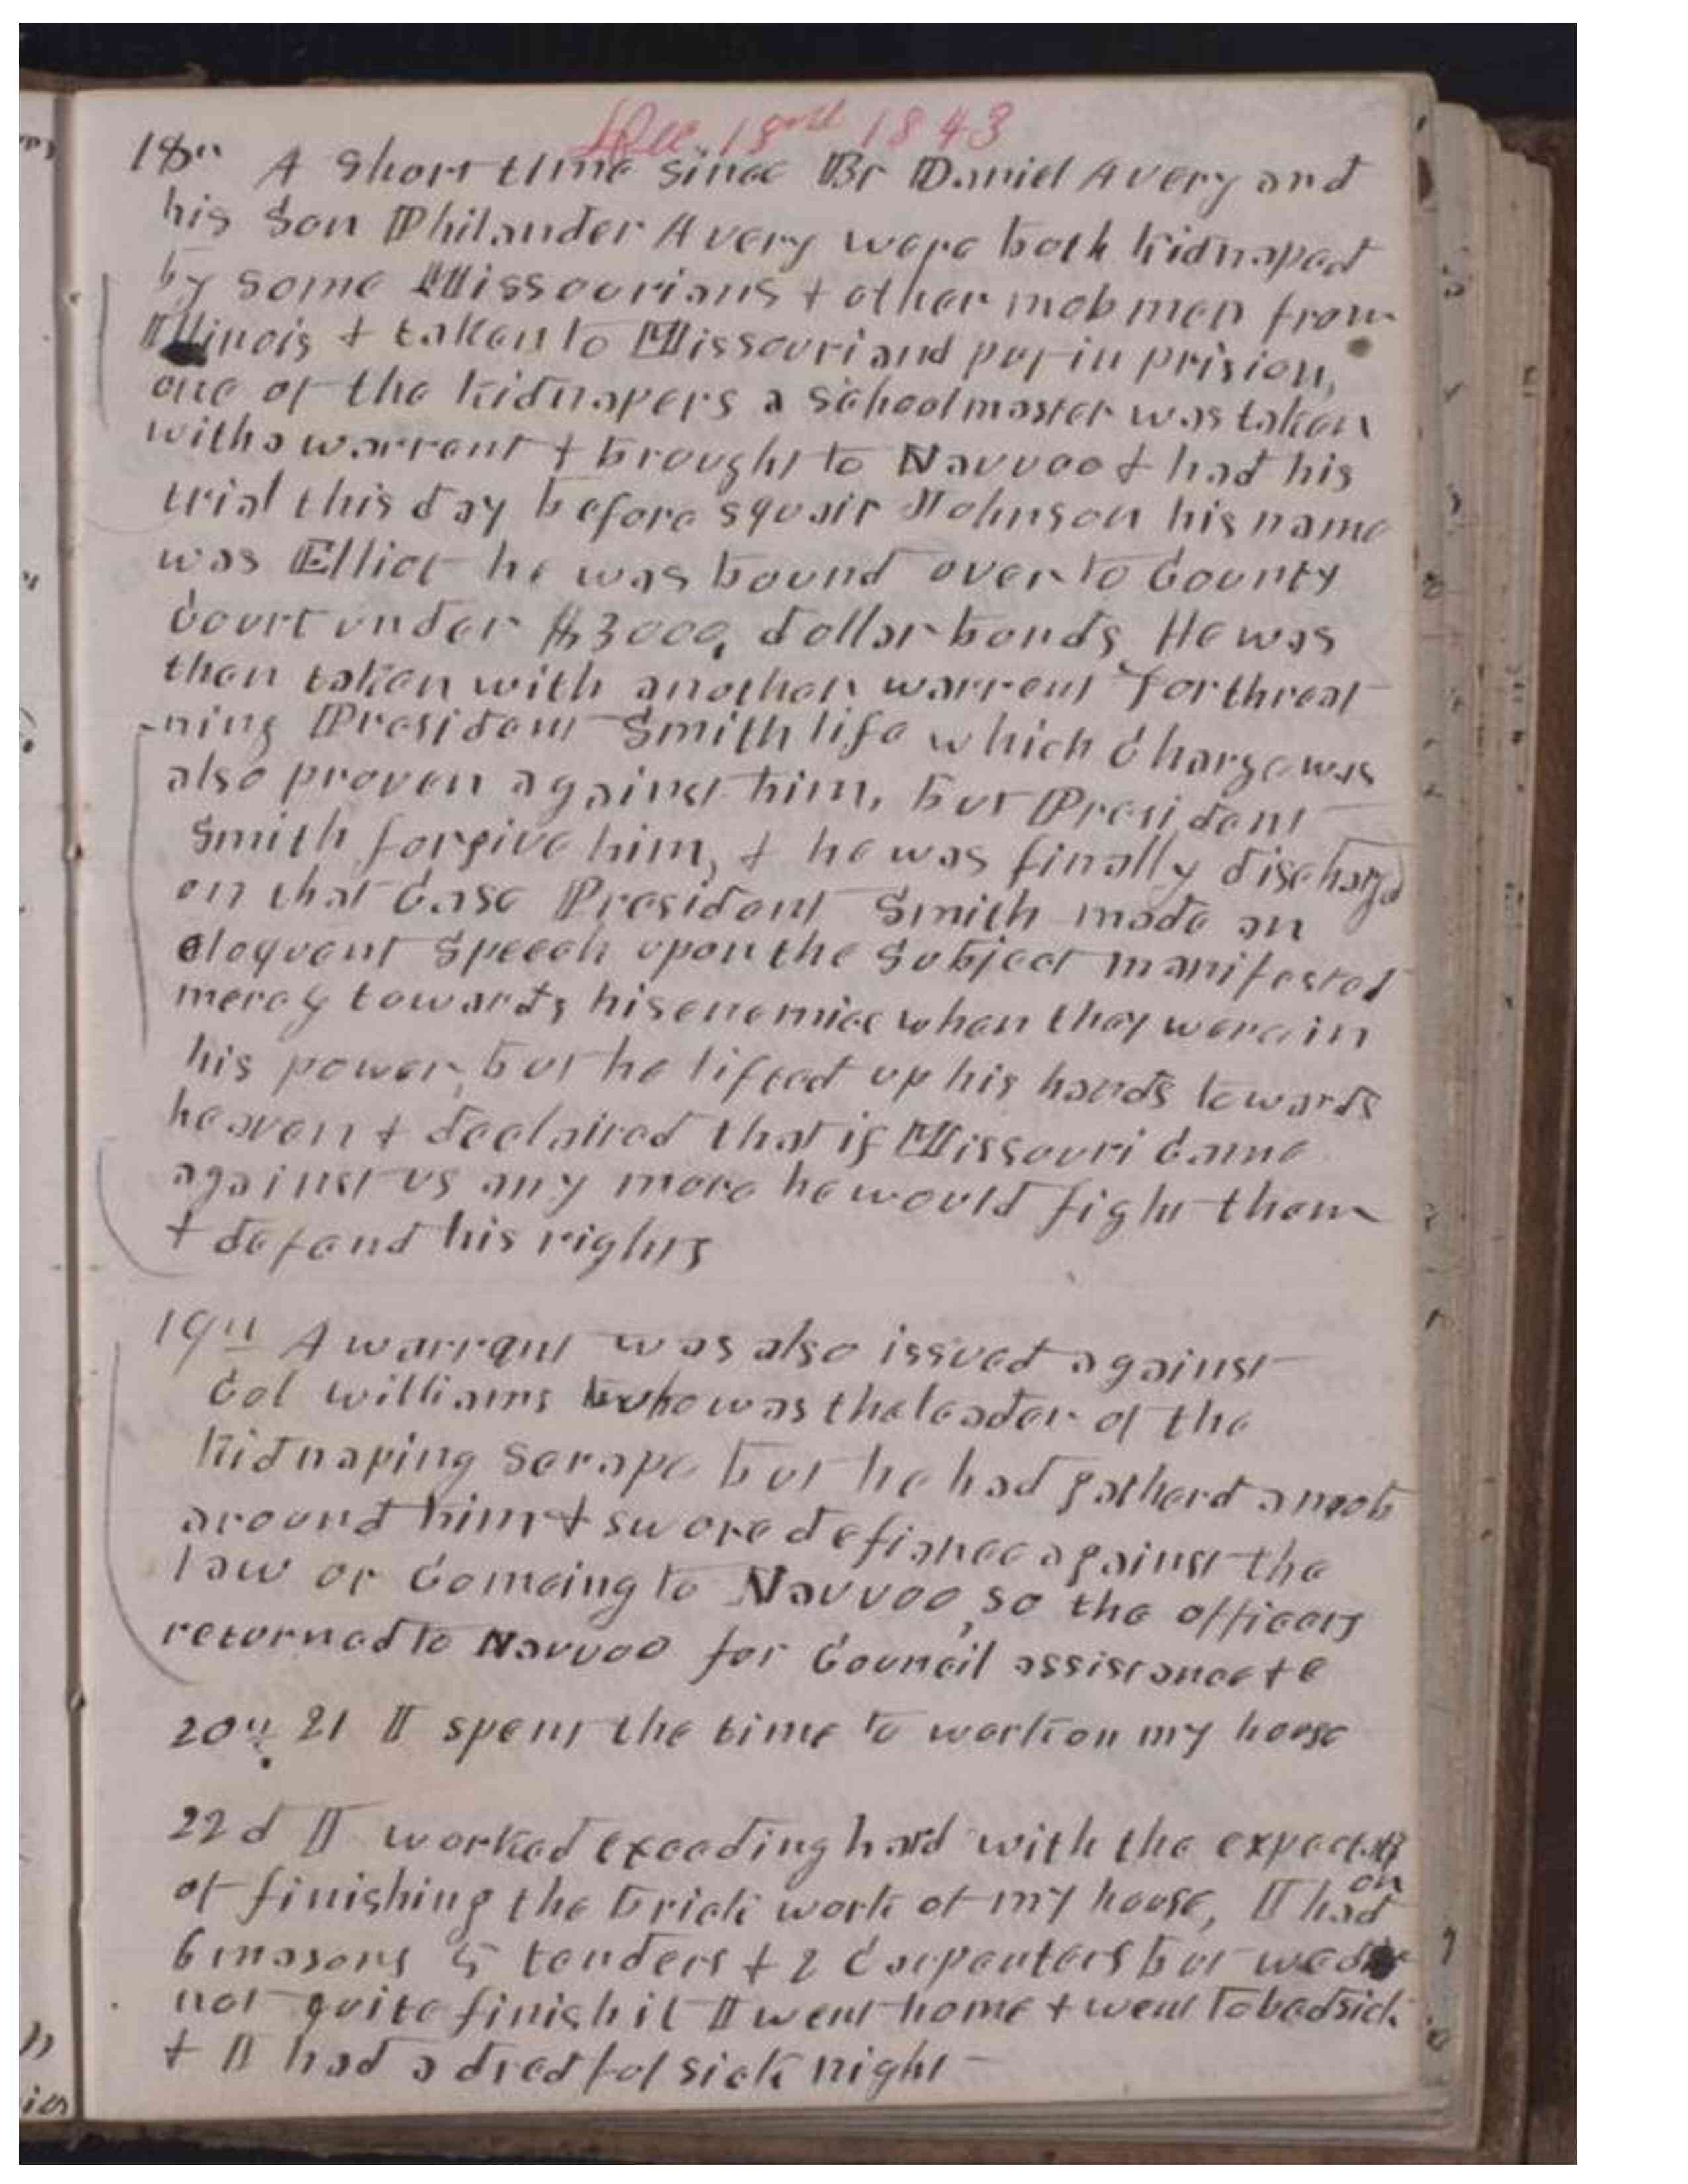 Dec 18th 1843
18" A Short time since Br Daniel Avery and
his Son Philander Avery were both kidnaped
by some Missourians + other mob men from
Illinois + taken to Missouri and put in prision,
one of the kidnapers a School master was taken
with a warrent + brought to Nauvoo + had his
trial this day before squair Johnson his name
was Elliot he was bound over to County
Court under $3000, dollar bonds He was
then taken with another warrent for threat
-ning President Smith life which Charge was
also proven against him, but President
Smith forgive him, + he was finally discharged
on that Case President Smith made an
eloquent Speech upon the Subject manifested
mercy towards his enemies when they were in
his power, but he lifted up his hands towards
heaven + declaired that if Missouri Came
against us any more he would fight them
+ defend his rights
19th A warrant was also issued against
Col Williams who was the leader of the
kidnaping Scrape but he had gatherd a mob
around him + swore defiance against the
law or Comeing to Nauvoo, so the officers
returned to Nauvoo for Council assistance + c
20th 21 I spent the time to work on my house
22d I worked exceding hard with the expectati
on
of finishing the brick work of my house, I had
6 masons 5 tenders + 2 Carpenters but we did
not quite finish it I went home + went to bed sick
+ I had a dredful sick night